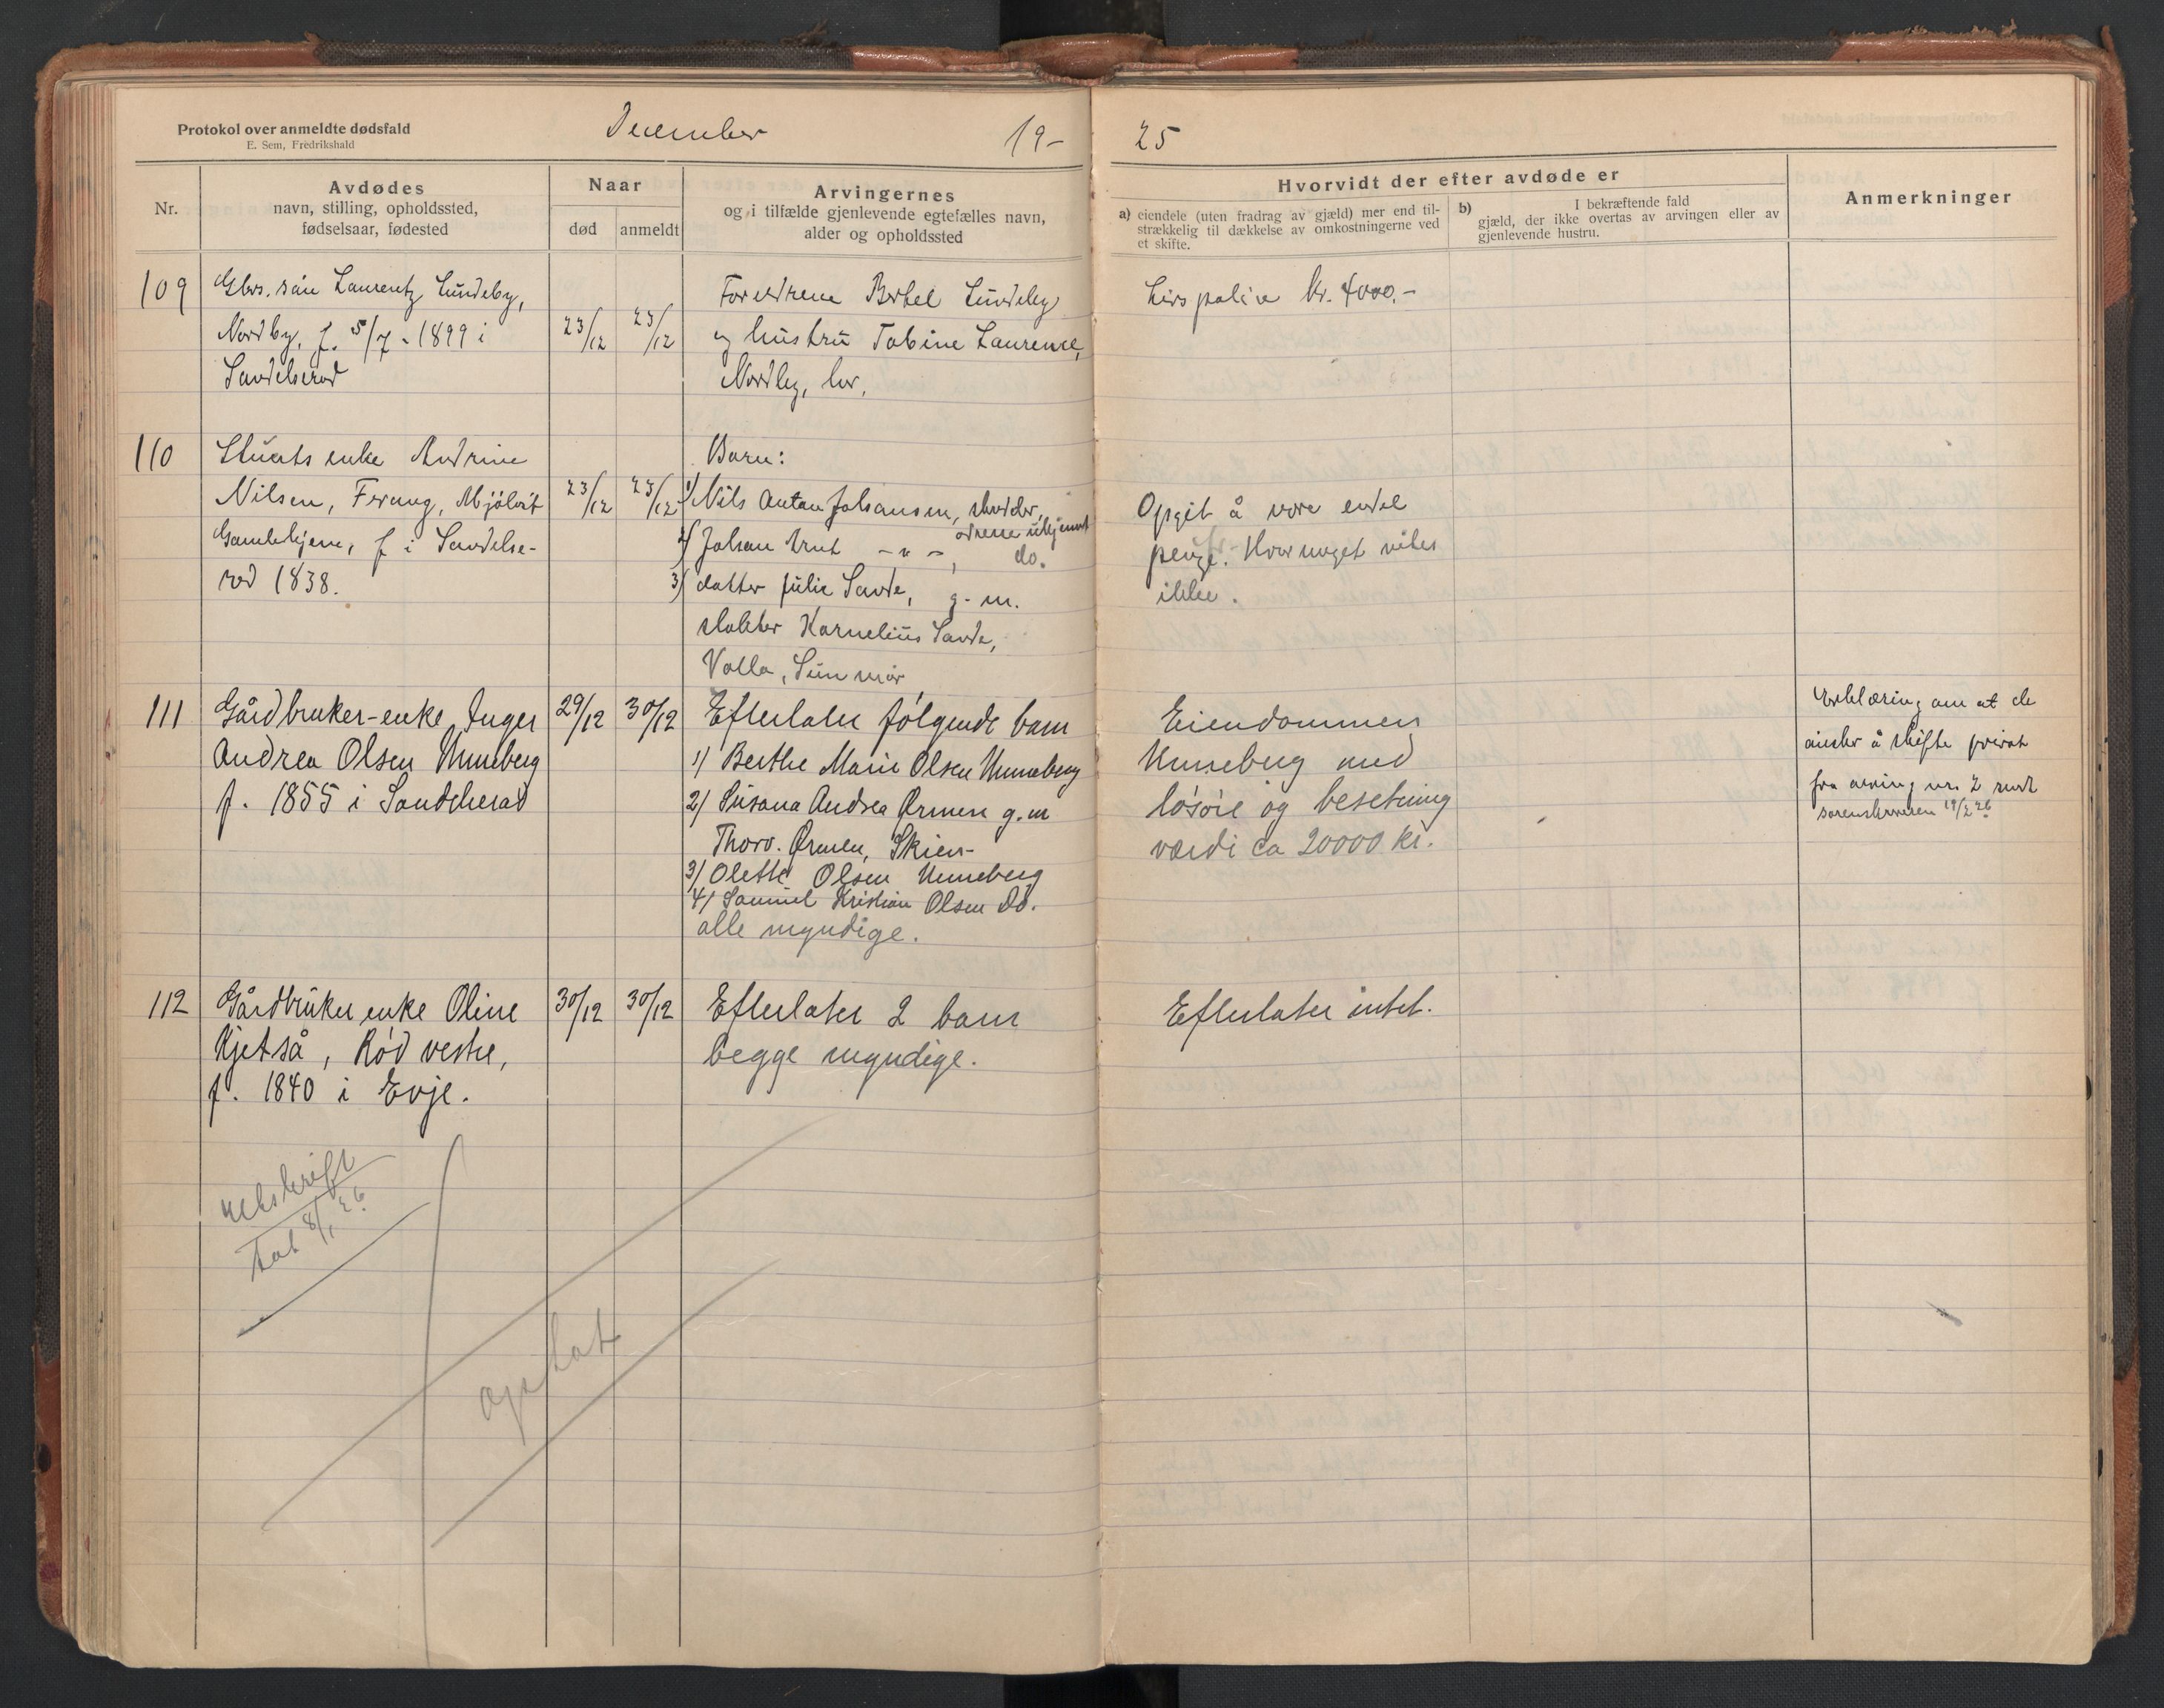 Protokol over anmeldte dødsfald
E. Sem, Fredrikshald
December
19-
25
Nr.
Avdødes
navn, stilling, opholdssted,
fødselsaar, fødested
Naar
død
anmeldt
Arvingernes
og i tilfælde gjenlevende egtefælles navn,
alder og opholdssted
Hvorvidt der efter avdøde er
a) eiendele (uten fradrag av gjæld) mer end til-
strækkelig til dækkelse av omkostningerne ved
et skifte.
b) I bekræftende fald
gjæld, der ikke overtas av arvingen eller av
gjenlevende hustru.
Anmerkninger
109
Gbrs. søn Laurentz Lundeby,
Nordby, f. 5/7 - 1899 i
Sandeherad
23/12
23/12
Foreldrene Bertel Lundeby
og hustru Tobine Laurence,
Nordby, her.
Livspolice kr. 4000.-
110
Stuerts enke Andrine
Nilsen, Freung,
Gamlehjem, f i Sandehe-
rad 1838.
23/12
23/12
Barn:
1) Nils Anton Johansen,
adresse ukjent
2) Johan -"-, do.
3) datter Julie Sande, g. m.
slakter Kornelius Sande,
Valla, Sunmør
Opgit å være endel
penge. Hvor meget vites
ikke.
111
Gårdbruker-enke Inger
Andrea Olsen Unneberg
f. 1855 i Sandeherad
29/12
30/12
Efterlater følgende barn
1) Berthe Marie Olsen Unneberg
2) Susana Andrea Ørmen g. m
Thorv. Ørmen, Skien-
3) Olette Olsen Unneberg
4) Samuel Kristian Olsen do.
alle myndige.
Eiendommen
Unneberg med
løsøre og besetning
værdi ca 20000 kr.
Erklæring om at de
ønsker å skifte privat
fra arving nr. 2 sendt
sorenskriveren 19/2 26
112
Gårdbruker enke Oline
Kjetså, Rød vestre,
f. 1840 i Evje.
30/12
30/12
Efterlater 2 barn
begge myndige.
Efterlater intet.
utskrift
tat 8/1 26
opslat